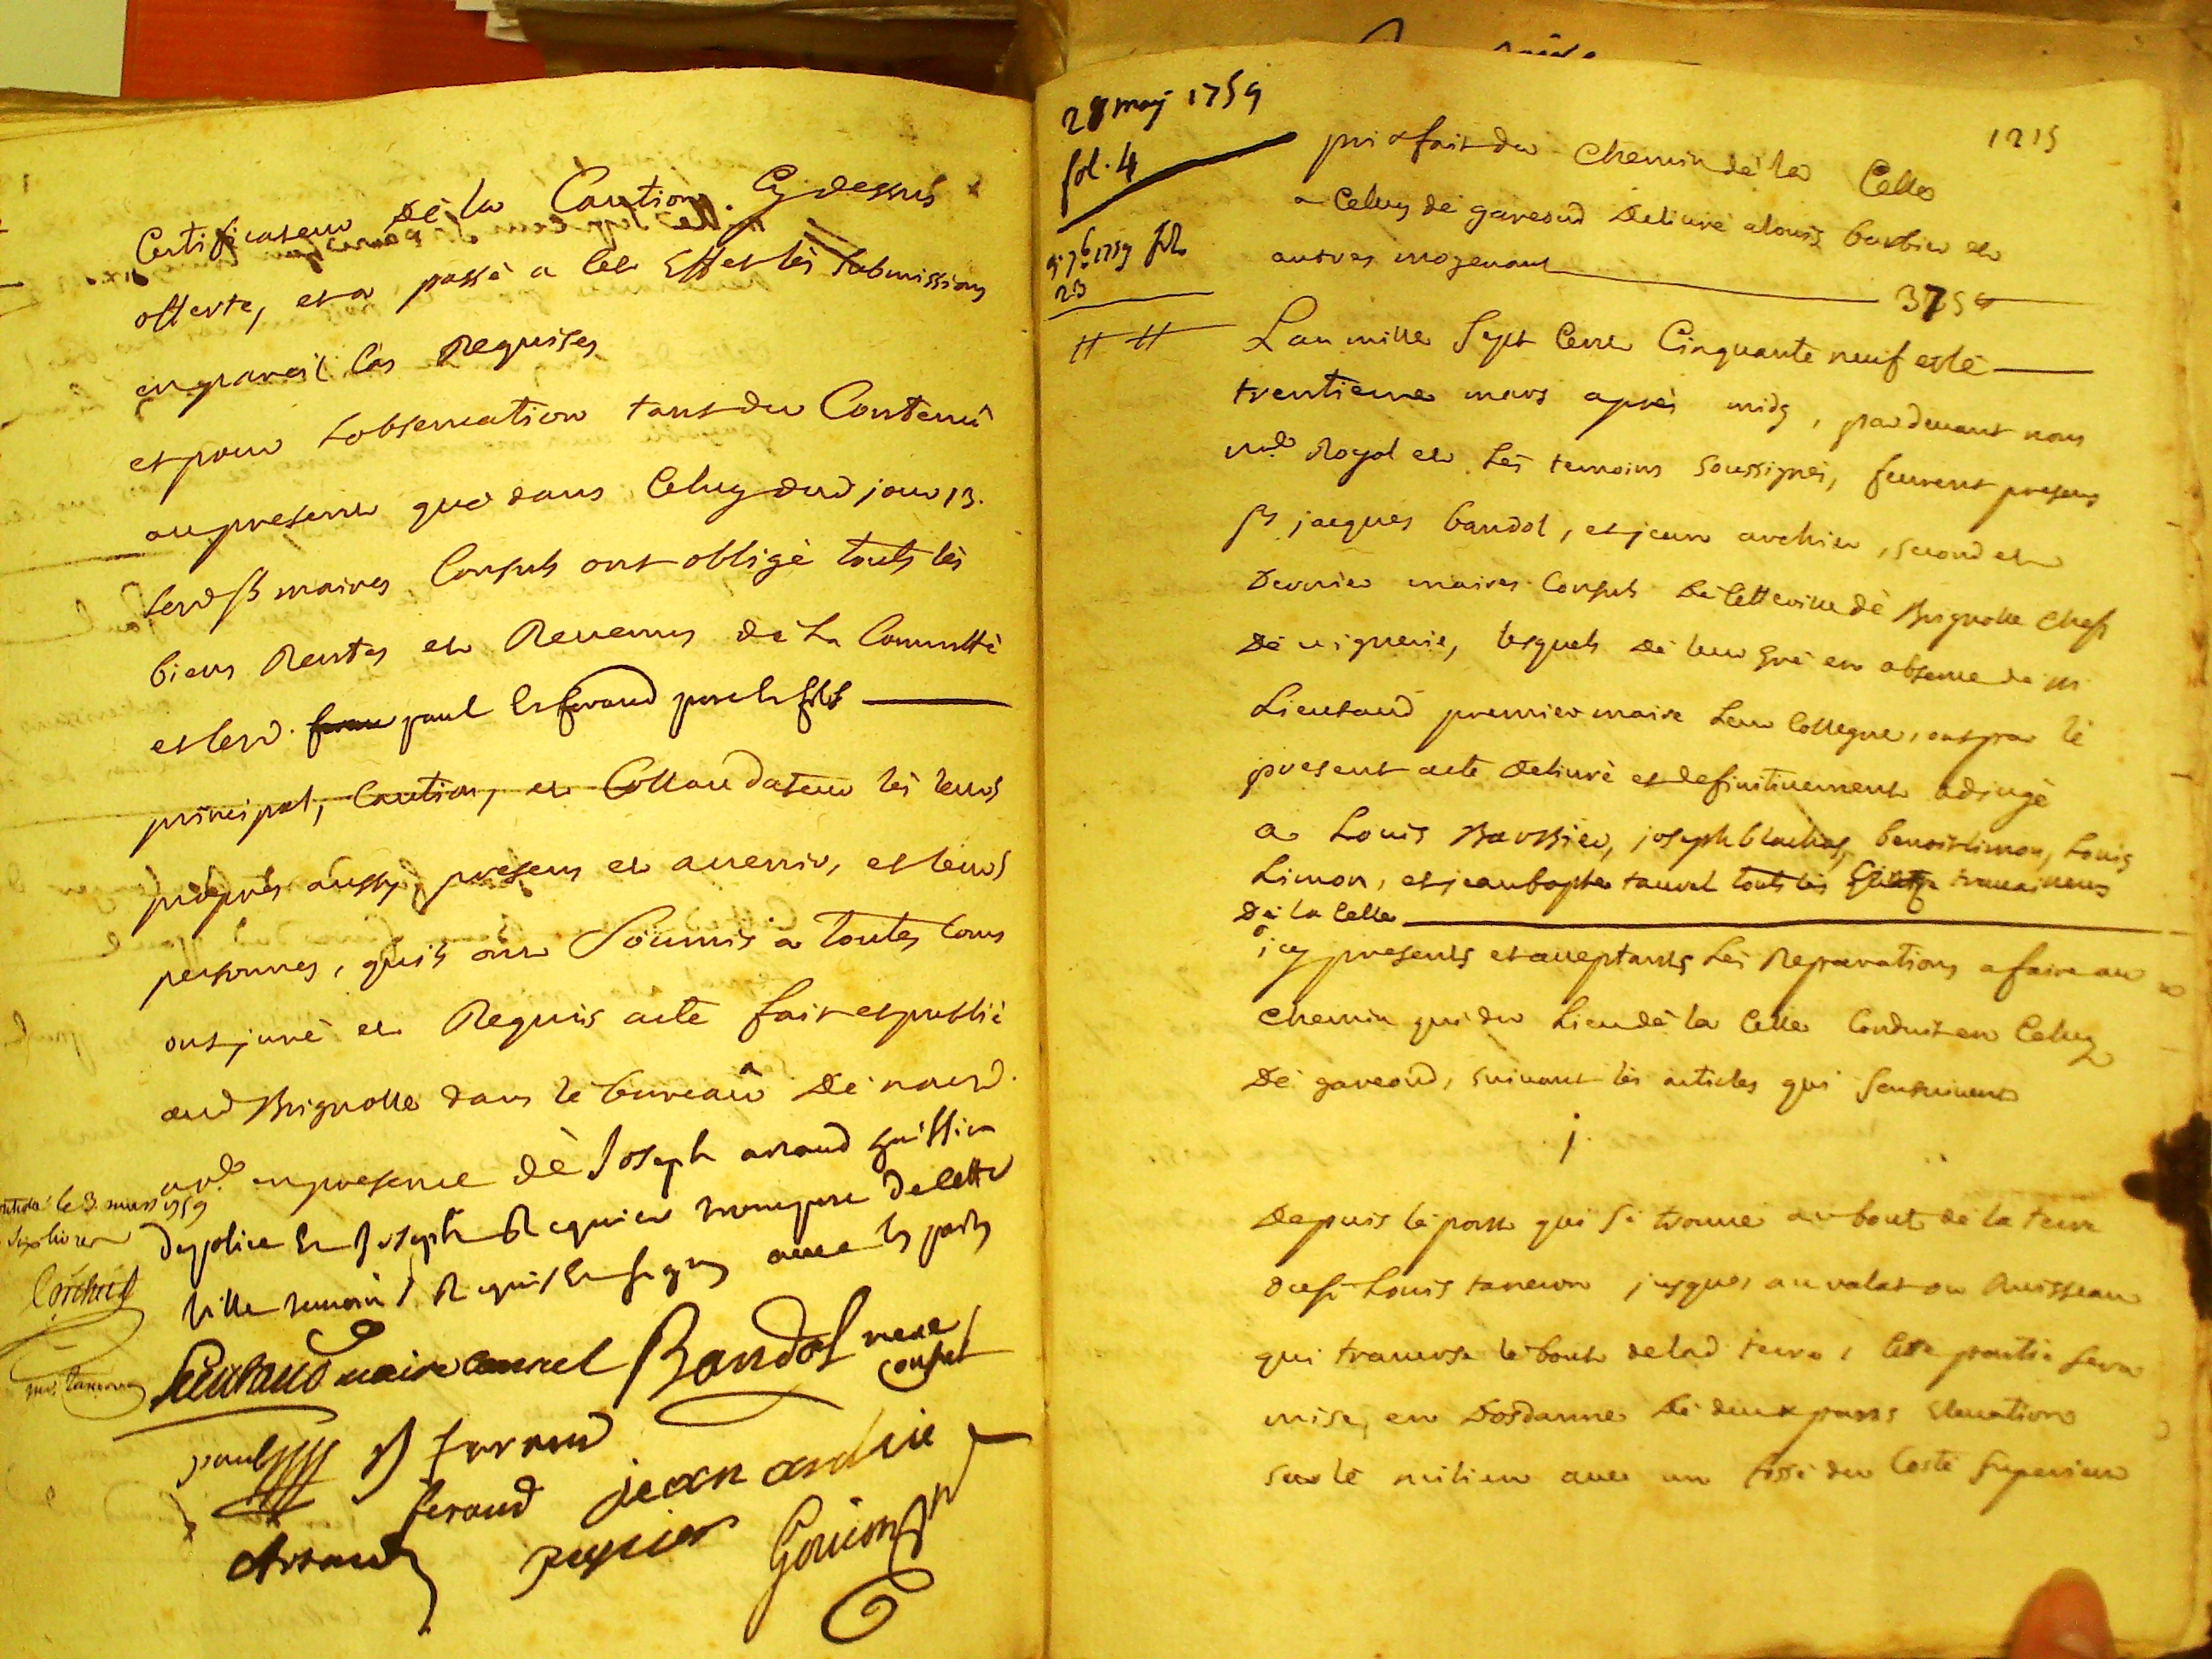 Certificateur de la Caution Cy dessus
offerte, et a passé a cet Effet les submissions
en pareil cas Requises
et pour l'observation tant du Contenû
au present que dans Celuy dud jour 13.
lesd srs maires Consuls ont obligé touts les
biens Rentes et Revenus de la Commtté
et lesd. paul et feraud pere et fils
principal, Caution, et Collaudateur les leurs
propres aussy, presens et avenir, et leurs
personnes, quils ont Soumis a toutes Cours
ont juré et Requis acte fait et publié
aud Brignolle dans le bureau de nousd.
nre en presence de Joseph arnaud huissier
de police et Joseph Requier trompete de cette
ville temoins Requis et signés avec les partis
le 3. mars 1759
six livres
Lieutaud maire consul Bandol mere
consul
paul feraud
feraud jean archie
Arnaud requier Goujon nre
28 may 1759
fol. 4
9. 7b 1759 fol.
23
1215
prixfait du Chemin de la Celle
a Celuy de gareoud delivré a louis barbier et
autres moyenant 375 #
L'an mille sept Cent Cinquante neuf et le
trentieme mars après midy, pardevant nous
nre Royal et les temoins soussignés, feurent presens
srs jacques bandol, et jean archier, second et
dernier maires Consuls de cette ville de Brignolle Chef
de viguerie, lesquels de leur gré en absence de mr
Lieutaud premier maire leur Collegue, ont par le
present acte delivré et definitivement adjugé
a Louis Barbier, joseph blachas, benoit limon, Louis
Limon, et jean baptte tauvel touts les travailleurs
de la Celle
icy presents et acceptants les Reparations a faire au
chemin qui du Lieu de la Celle Conduit en Celuy
de gareoud, suivant les articles qui s'ensuivent
j.
Depuis le pont qui se trouve au bout de la terre
du sr Louis taneron jusques au valat ou Ruisseau
qui traverse le bout de lad terre, Cette partie sera
mise en Dosdanne de deux pans elevation
sur le milieu avec un fossé du Costé superieur